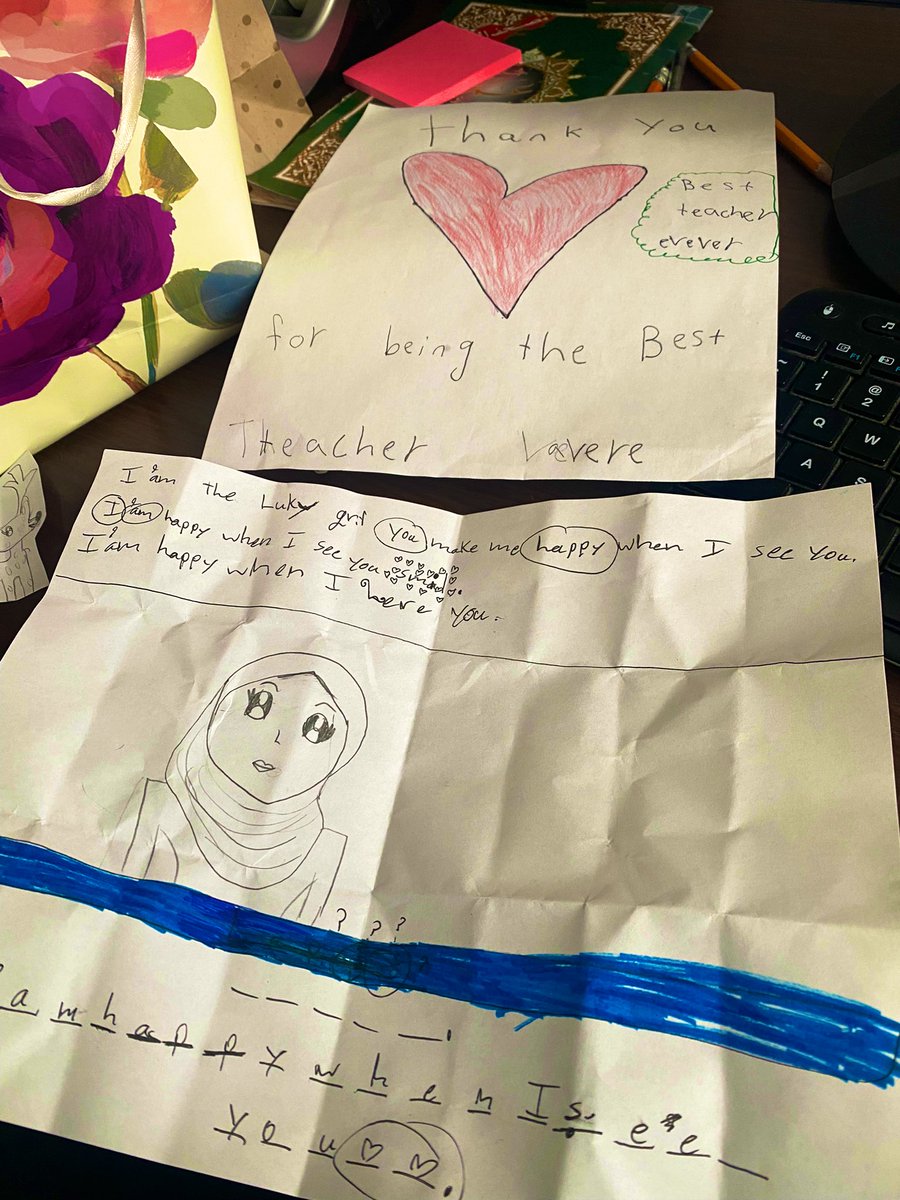 thank you
Best
teacher
evever
for being the Best
Teacher
I am the Luky
I am happy when I see you
You make me happy when I see you.
I am happy when I here you.
? ? ?
a m h a p p y w h e n I s e e
y o u
Esc
F1
!
1
@
2
Q
W
A
S